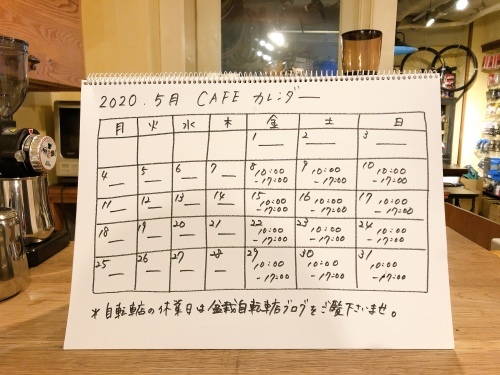 2020.5月 CAFE カレンダー
月 火 水 木 金 土 日
1 — 2 — 3 —
4 — 5 — 6 — 7 — 8 10:00 -17:00 9 10:00 -17:00 10 10:00 -17:00
11 — 12 — 13 — 14 — 15 10:00 -17:00 16 10:00 -17:00 17 10:00 -17:00
18 — 19 — 20 — 21 — 22 10:00 -17:00 23 10:00 -17:00 24 10:00 -17:00
25 — 26 — 27 — 28 — 29 10:00 -17:00 30 10:00 -17:00 31 10:00 -17:00
*自転車店の休業日は盆栽自転車店ブログをご覧下さいませ。